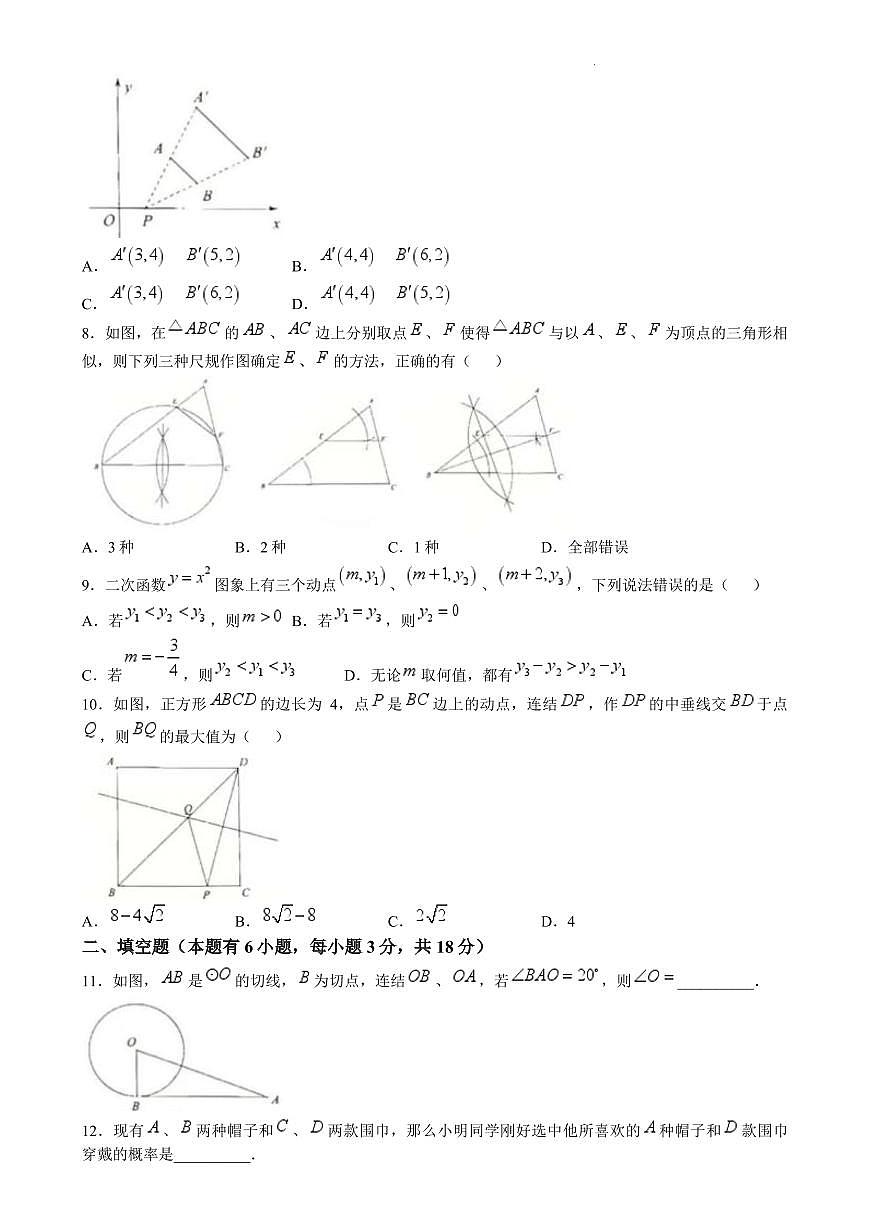 y
A'
A
B'
B
O P x
A．A′(3,4) B′(5,2) B．A′(4,4) B′(6,2)
C．A′(3,4) B′(6,2) D．A′(4,4) B′(5,2)
8．如图，在△ABC的AB、AC边上分别取点E、F使得△ABC与以A、E、F为顶点的三角形相
似，则下列三种尺规作图确定E、F的方法，正确的有（ ）
E F B C
A E F B C
A E F B C
A．3种 B．2种 C．1种 D．全部错误
9．二次函数y=x²图象上有三个动点(m,y₁)、(m+1,y₂)、(m+2,y₃)，下列说法错误的是（ ）
A．若y₁<y₂<y₃，则m>0 B．若y₁=y₃，则y₂=0
C．若m=-3/4，则y₂<y₁<y₃ D．无论m取何值，都有y₃-y₂>y₂-y₁
10．如图，正方形ABCD的边长为4，点P是BC边上的动点，连结DP，作DP的中垂线交BD于点
Q，则BQ的最大值为（ ）
A D
Q
B P C
A．8-4√2 B．8√2-8 C．2√2 D．4
二、填空题（本题有6小题，每小题3分，共18分）
11．如图，AB是⊙O的切线，B为切点，连结OB、OA，若∠BAO=20°，则∠O=__________．
O
B A
12．现有A、B两种帽子和C、D两款围巾，那么小明同学刚好选中他所喜欢的A种帽子和D款围巾
穿戴的概率是__________．